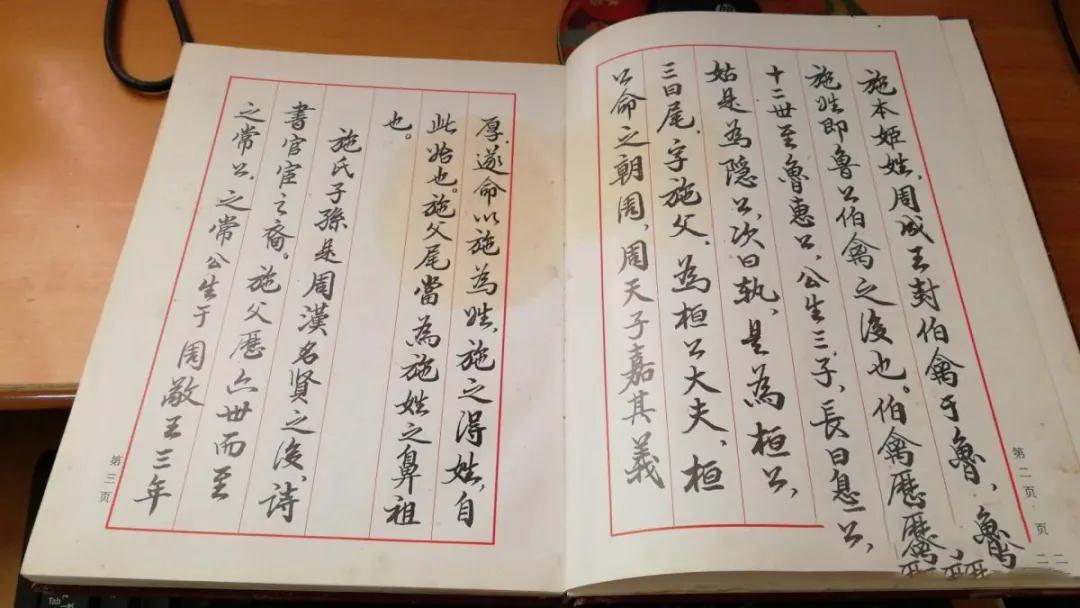 施本姬姓,周成王封伯禽于魯,魯
施姓即魯公伯禽之後也。伯禽歷
十二世至魯惠公,公生三子,長曰息公,
姑是為隱公,次曰軌,是為桓公,
三曰尾,字施父,為桓公大夫,桓
公命之朝周,周天子嘉其義
第二页
页
厚,遂命以施為姓,施之得姓,自
此始也。施父尾當為施姓之鼻祖
也。
施氏子孫是周漢名賢之後,詩
書官宦之裔。施父歷六世而至
之常公,之常公生于周敬王三年
第三页
hp
Tab